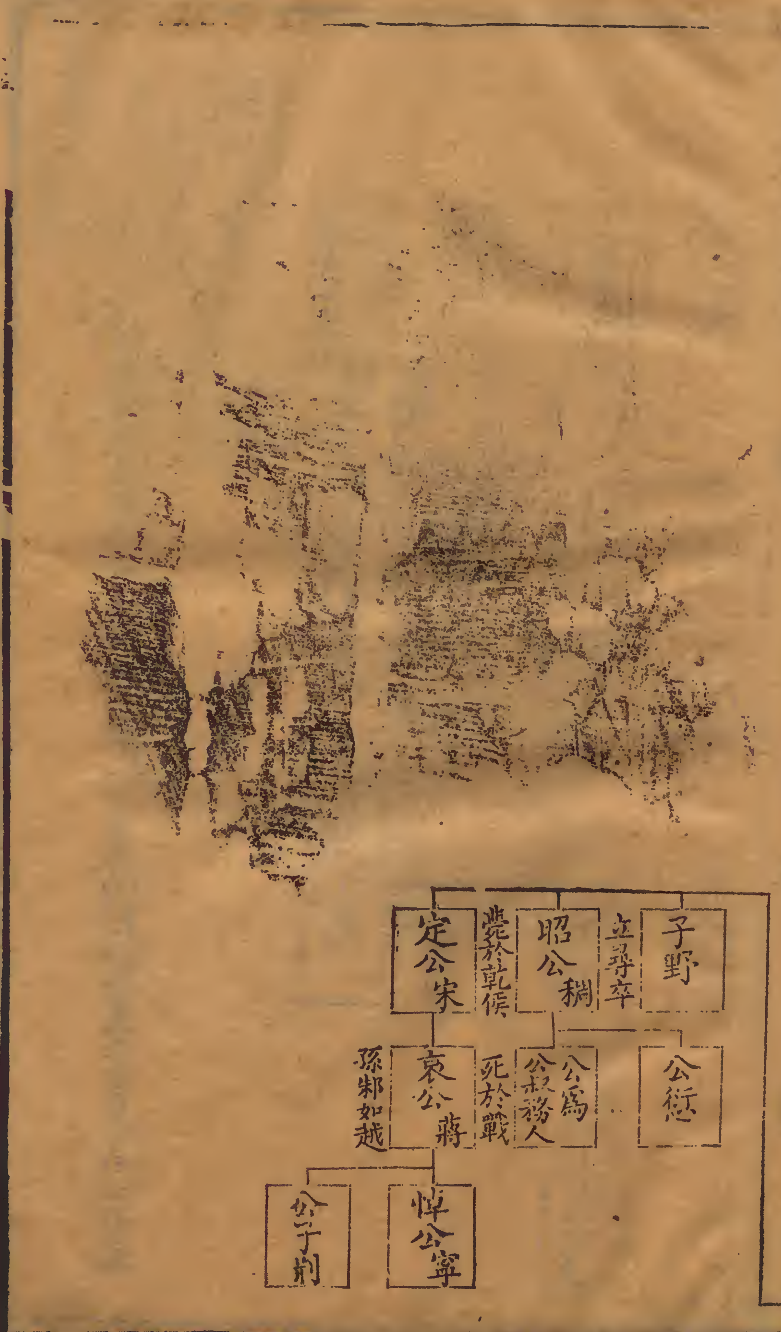 子野
立尋卒
昭公稠
薨於乾侯
定公宋
公衍
公爲
公叔務人
死於戰
哀公蔣
孫邾如越
悼公寧
公子荆